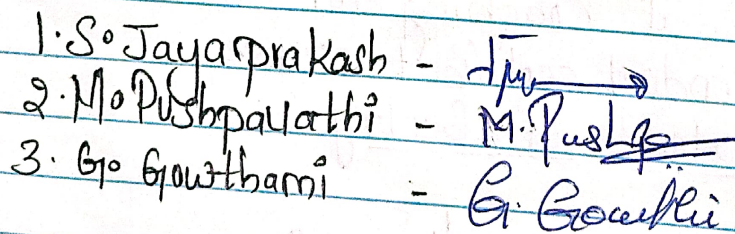 1. S. Jayaprakash -
2. M. Pushpavathi - M. Pushpa
3. G. Gowthami - G. Gowthami